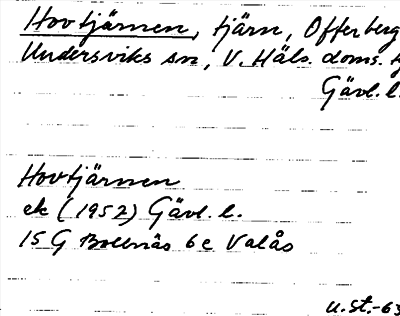 Hovtjärnen, tjärn, Offerberg
Undersviks sn, V. Häls. doms.
Gävl. l.
Hovtjärnen
ek (1952) Gävl. l.
15 G Bollnäs 6c Valås
u.st.-63